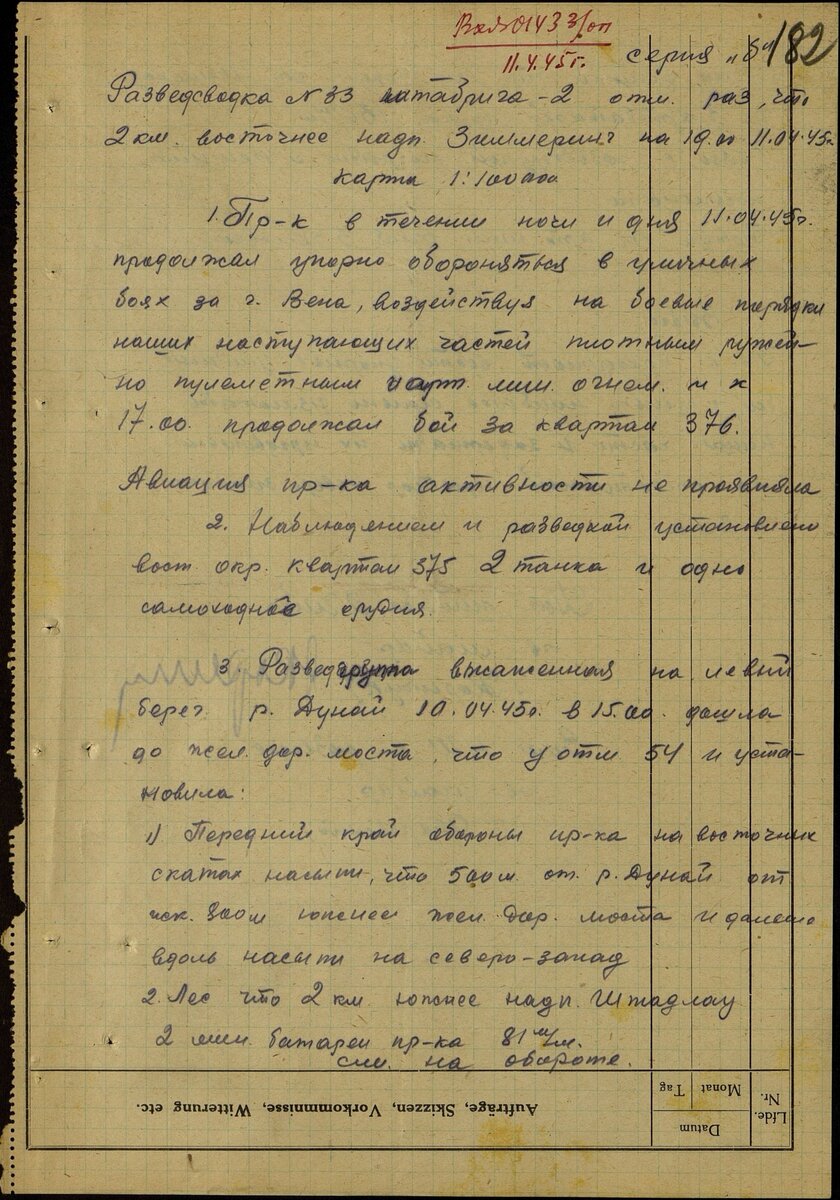 11.4.45г.
серия „Б"
182
Разведсводка №33 штабрига-2 отм. раз, что
2 км. восточнее надп. Зиммеринг на 19.00 11.04.45г.
карта 1:100000
1. Пр-к в течении ночи и дня 11.04.45г.
продолжал упорно обороняться в уличных
боях за г. Вена, воздействуя на боевые порядки
наших наступающих частей плотным ружей-
но пулеметным и арт. мин. огнем. и к
17.00. продолжал бой за квартал 376.
Авиация пр-ка активности не проявляла
2. Наблюдением и разведкой установлено
вост. окр. квартал 375 2 танка и одно
самоходное орудия.
3. Разведгруппа высаженная на левый
берег р. Дунай 10.04.45г. в 15.00. дошла
до жел. дор. моста, что у отм 54 и уста-
новила:
1) Передний край обороны пр-ка на восточных
скатах насыпи, что 500м. от р. Дунай от
иск. 800м южнее жел. дор. моста и далее
вдоль насыпи на северо-запад
2. Лес что 2 км. южнее надп. Штадлау
2 мин. батареи пр-ка 81 м/м.
см. на обороте.
Aufträge, Skizzen, Vorkommnisse, Witterung etc.
Monat Tag
Datum
Lfde. Nr.